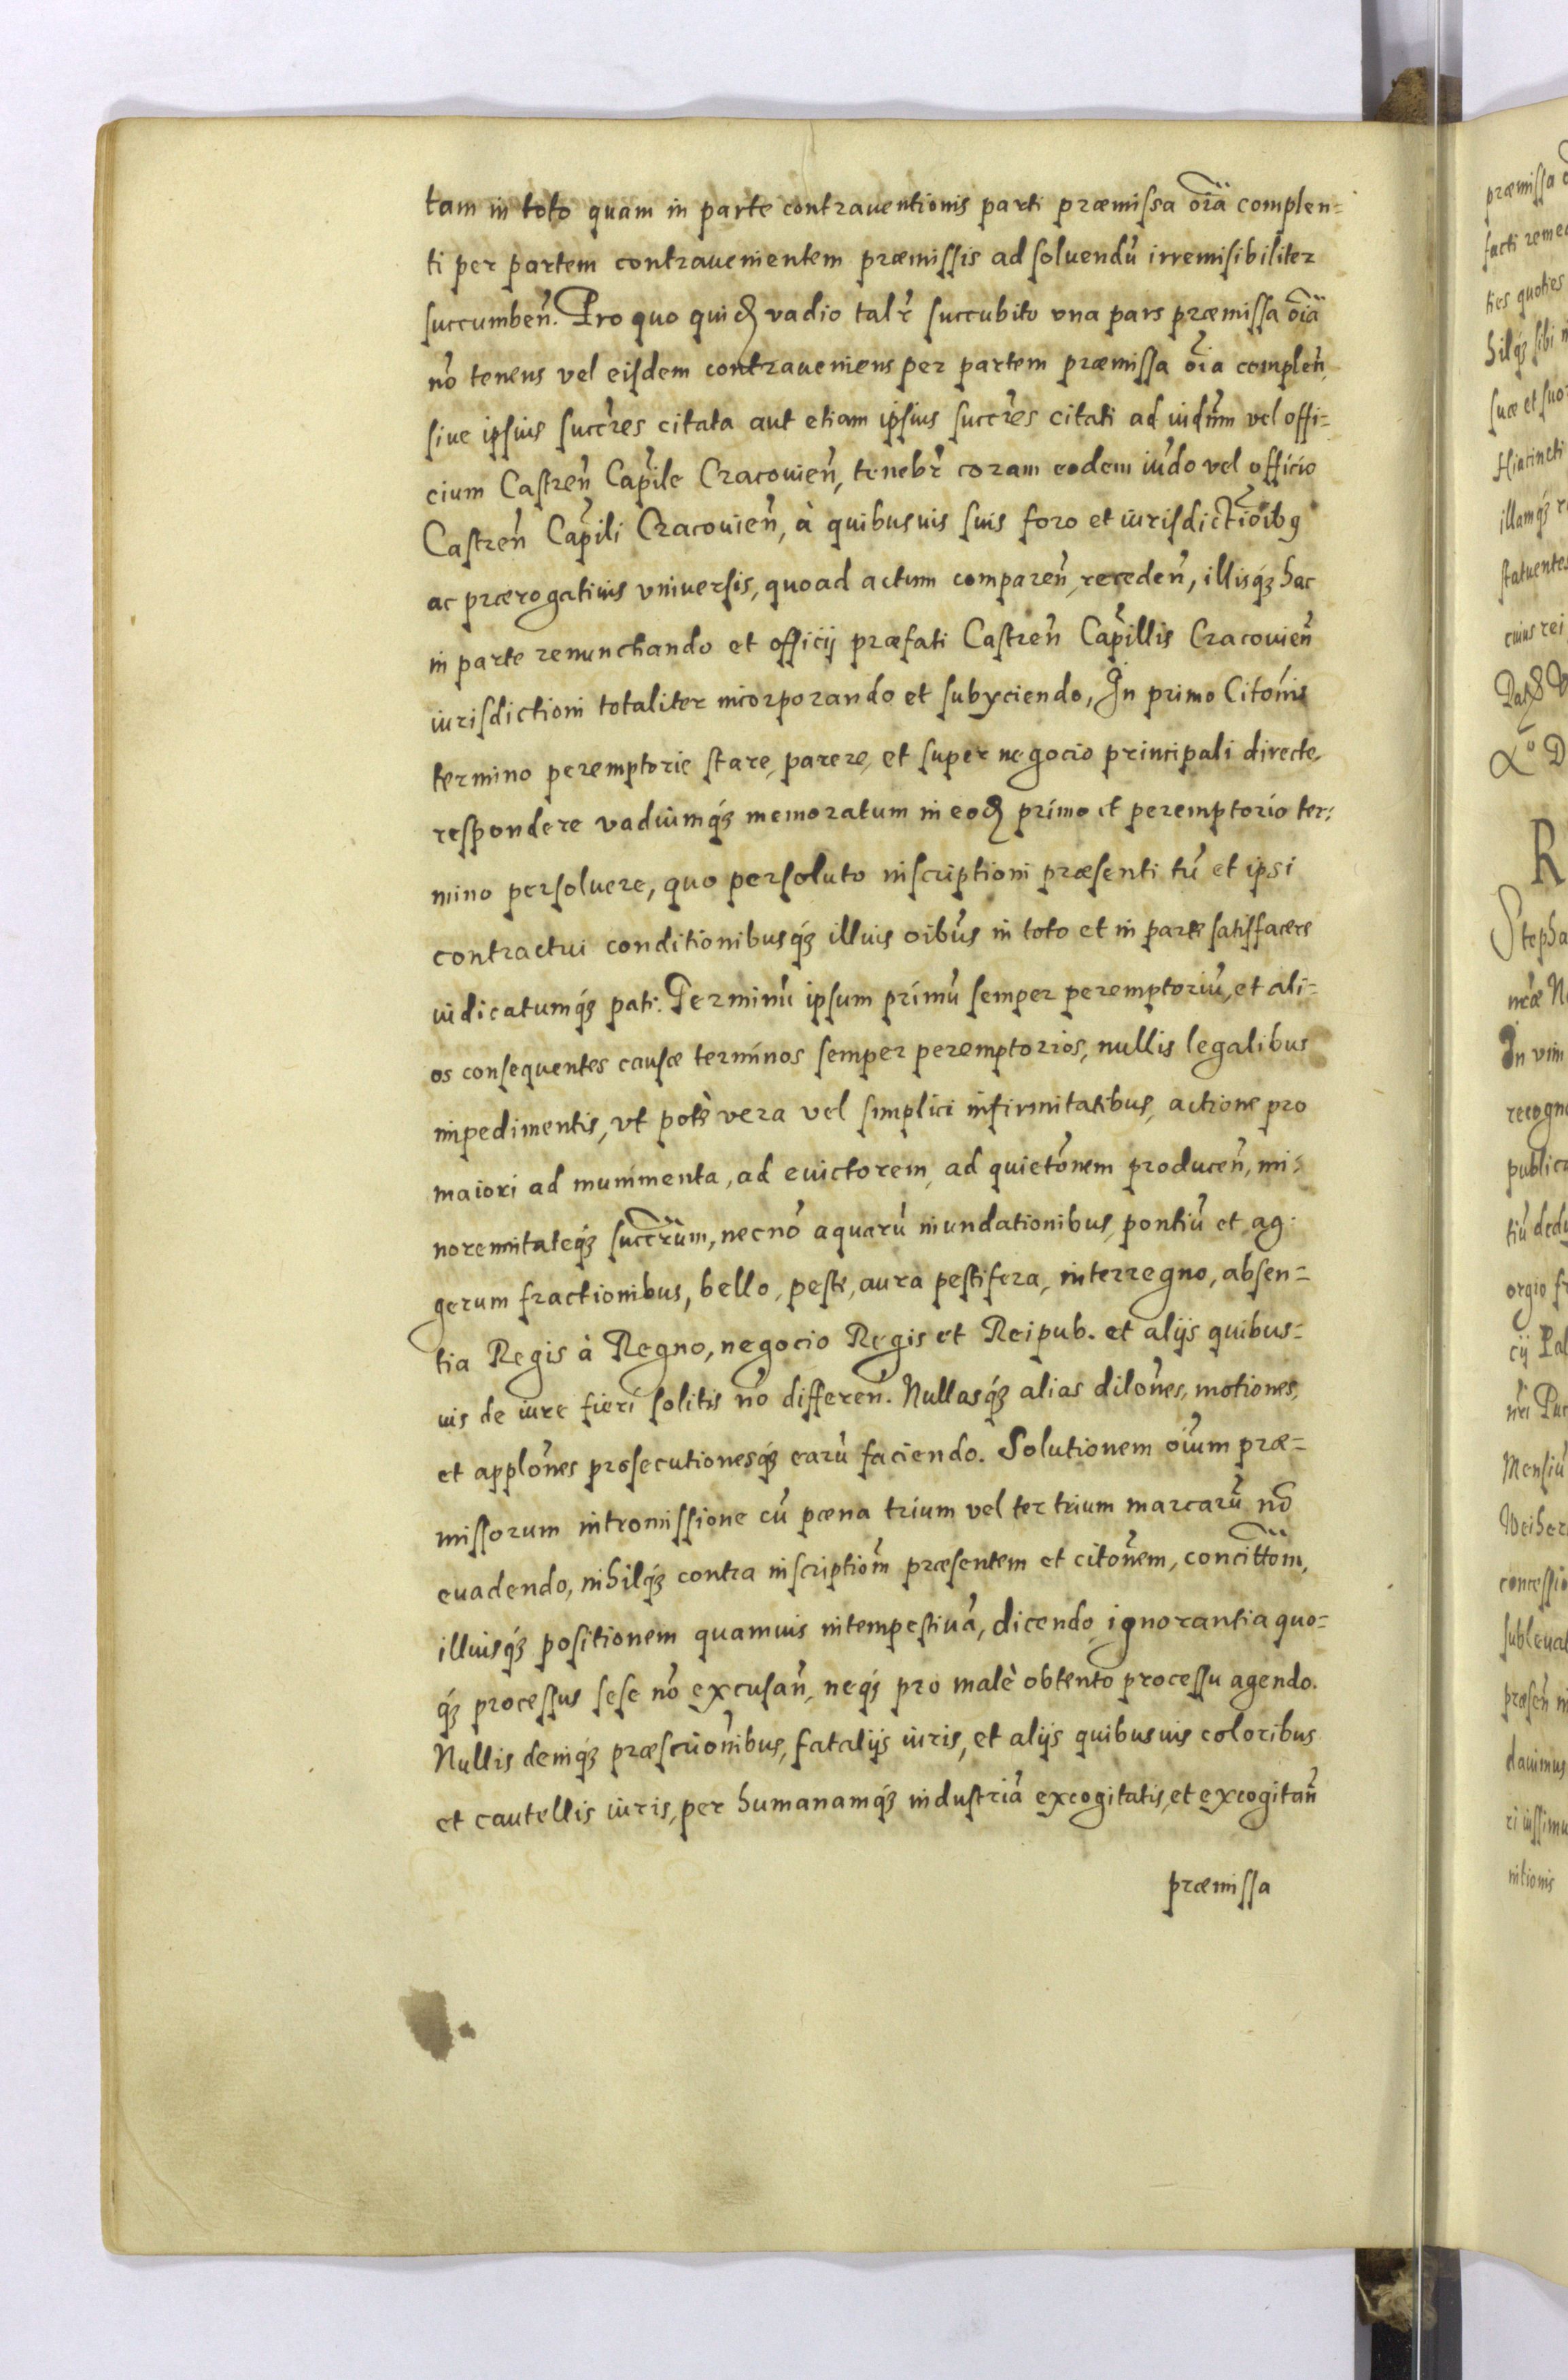 tam in toto quam in parte contrauentionis parti præmissa oīa complen=
ti per partem contrauenientem præmissis ad soluendū irremisibiliter
succumbeñ. Pro quo quidē vadio talr̃ succubito vna pars præmissa oīa
nō tenens vel eisdem contraueniens per partem præmissa oīa compleñ,
siue ipsius succr̃es citata aut etiam ipsius succr̃es citati ad iudm̃ vel offi=
cium Castreñ Cap̃ile Cracouieñ, tenebr̃ coram eodem iuđo vel officio
Castreñ Cap̃ili Cracouieñ, à quibusuis suis foro et iurisdictiōibꝰ
ac prærogatiuis vniuersis, quoad actum compareñ, recedeñ, illisq́ꝫ hac
in parte renunctiando et officij præfati Castreñ Cap̃illis Cracouieñ
iurisdictioni totaliter incorporando et subyciendo, In primo Citōnis
termino peremptorie stare, parere, et super negocio principali directe,
respondere vadiumq́ꝫ memoratum in eođ primo et peremptorio ter=
mino persoluere, quo persoluto inscriptioni præsenti tū et ipsi
contractui conditionibusq́ꝫ illius oībus in toto et in parte satisfacere
iudicatumq́ꝫ pati. Terminū ipsum primū semper peremptoriū, et ali=
os consequentes causæ terminos semper peremptorios, nullis legalibus
impedimentis, vt potè vera vel simplici infirmitatibus, actione pro
maiori ad munimenta, ad euictorem, ad quietōnem produceñ, mi=
norennitateq́ꝫ succr̃um, necnō aquarū inundationibus, pontiū et ag=
gerum fractionibus, bello, peste, aura pestifera, interregno, absen=
tia Regis à Regno, negocio Regis et Reipub. et alijs quibus=
uis de iure fieri solitis nō differeñ. Nullasq́ꝫ alias dilōnes, motiones,
et applōnes prosecutionesq́ꝫ earū faciendo. Solutionem oīum præ=
missorum intromissione cū pæna trium vel ter trium marcarū nō
euadendo, nihilq́ꝫ contra inscriptiōm præsentem et citōnem, concittōm,
illiusq́ꝫ positionem quamuis intempestiuā, dicendo, ignorantia quo=
q́ꝫ processus sese nō excusañ, neq́ꝫ pro malè obtento processu agendo.
Nullis deniq́ꝫ præscriōnibus, fatalijs iuris, et alijs quibusuis coloribus
et cautellis iuris, per humanamq́ꝫ industriā excogitatis, et excogitañ
præmissa